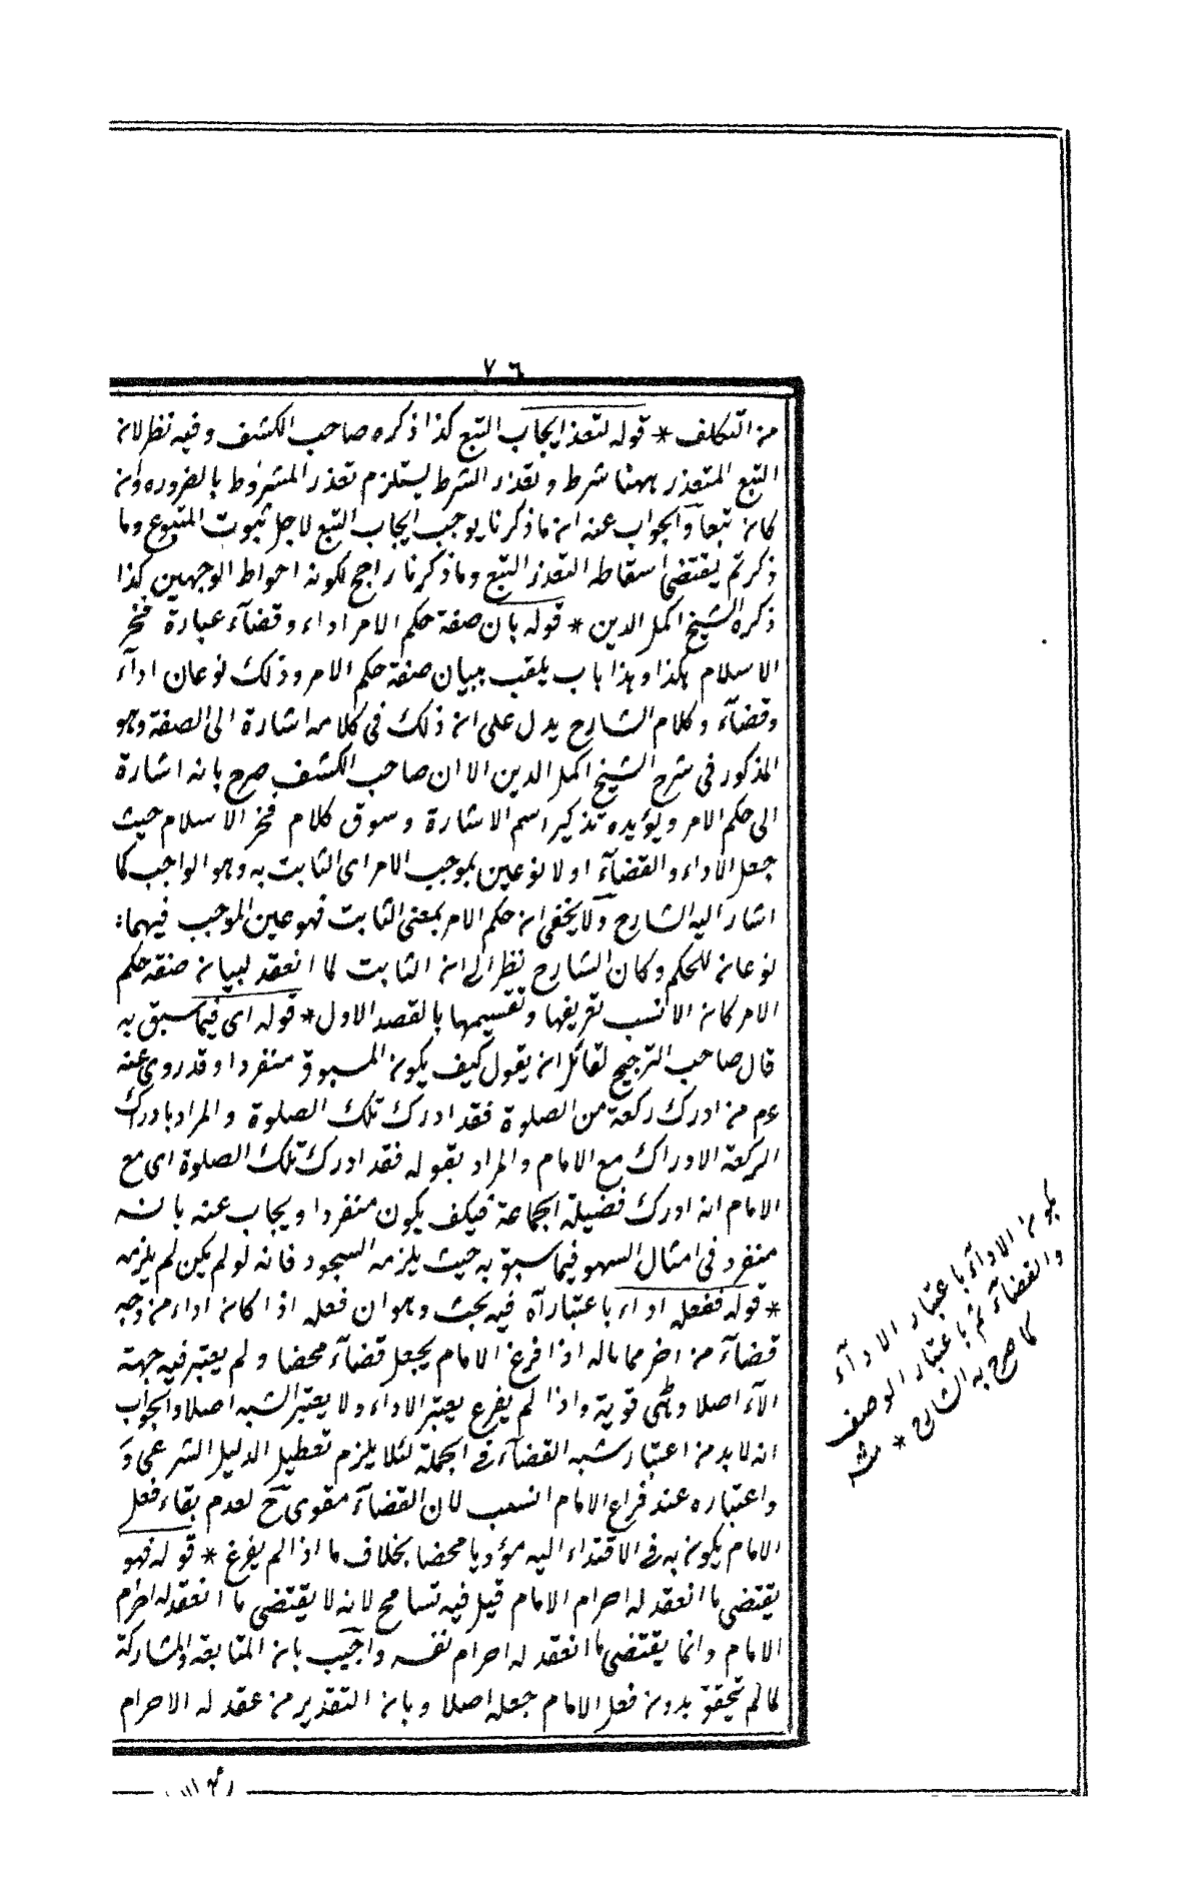 ٧٦
من التكلف * قوله لتعذر ايجاب التبع كذا ذكره صاحب الكشف وفيه نظر لان
التبع المتعذر ههنا شرط وتعذر الشرط يستلزم تعذر المشروط بالضرورة وان
كان تبعا والجواب عنه ان ما ذكرنا يوجب ايجاب التبع لاجل ثبوت المتبوع وما
ذكرتم يقتضى اسقاطه التعذر التبع وما ذكرنا راجح لكونه احواط الوجهين كذا
ذكره الشيخ اكمل الدين * قوله بان صفة حكم الامر اداء وقضاء عبارة فخر
الاسلام هكذا وهذا باب يلقب ببيان صفة حكم الامر وذلك نوعان اداء
وقضاء وكلام الشارح يدل على ان ذلك فى كلامه اشارة الى الصفة وهو
المذكور فى شرح الشيخ اكمل الدين الا ان صاحب الكشف صرح بانه اشارة
الى حكم الامر ويؤيده تذكير اسم الاشارة وسوق كلام فخر الاسلام حيث
جعل الاداء والقضاء اولا نوعين بموجب الامر اى الثابت به وهو الواجب كما
اشار اليه الشارح ولا يخفى ان حكم الامر بمعنى الثابت فهو عين الموجب فيهما
نوعان للحكم وكان الشارح نظر الى ان الثابت لما انعقد لبيان صفة حكم
الامر كان الانسب تعريفها وتقسيمها بالقصد الاول * قوله اى فيما سبق به
قال صاحب الترجيح لقائل ان يقول كيف يكون المسبوق منفردا وقد روى عنه
عم من ادرك ركعة من الصلوة فقد ادرك تلك الصلوة والمراد بادراك
الركعة الادراك مع الامام والمراد بقوله فقد ادرك تلك الصلوة اى مع
الامام انه ادرك فضيلة الجماعة فكيف يكون منفردا ويجاب عنه بانه
منفرد فى امثال السهو فيما سبق به حيث يلزمه السجود فانه لو لم يكن لم يلزمه
* قوله ففعله اداء باعتبار آه فيه بحث وهو ان فعله اذا كان اداء من وجه
قضاء من اخر مما ماله اذا فرغ الامام يجعل قضاء محضا ولم يعتبر فيه جهة
الآء اصلا وهى قوية واذا لم يفرغ يعتبر الاداء ولا يعتبر الشبه اصلا والجواب
انه لا بد من اعتبار شبه القضاء فى الجملة لئلا يلزم تعطيل الدليل الشرعى و
واعتباره عند فراغ الامام انسب لان القضاء مقوى ح لعدم بقاء فعل
الامام يكون به فى الاقتداء اليه مؤديا محضا بخلاف ما اذا لم يفرغ * قوله فهو
يقتضى ما انعقد له احرام الامام قيل فيه تسامح لانه لا يقتضى ما انعقد له احرام
الامام وانما يقتضى ما انعقد له احرام نفسه واجيب بان المتابعة والمشاركة
لما لم تتحقق بدون فعل الامام جعله اصلا وبان التقدير من عقد له الاحرام
يكون الاداء باعتبار الاداء
والقضاء ثم باعتبار الوصف
كما صرح به الشارح * منه